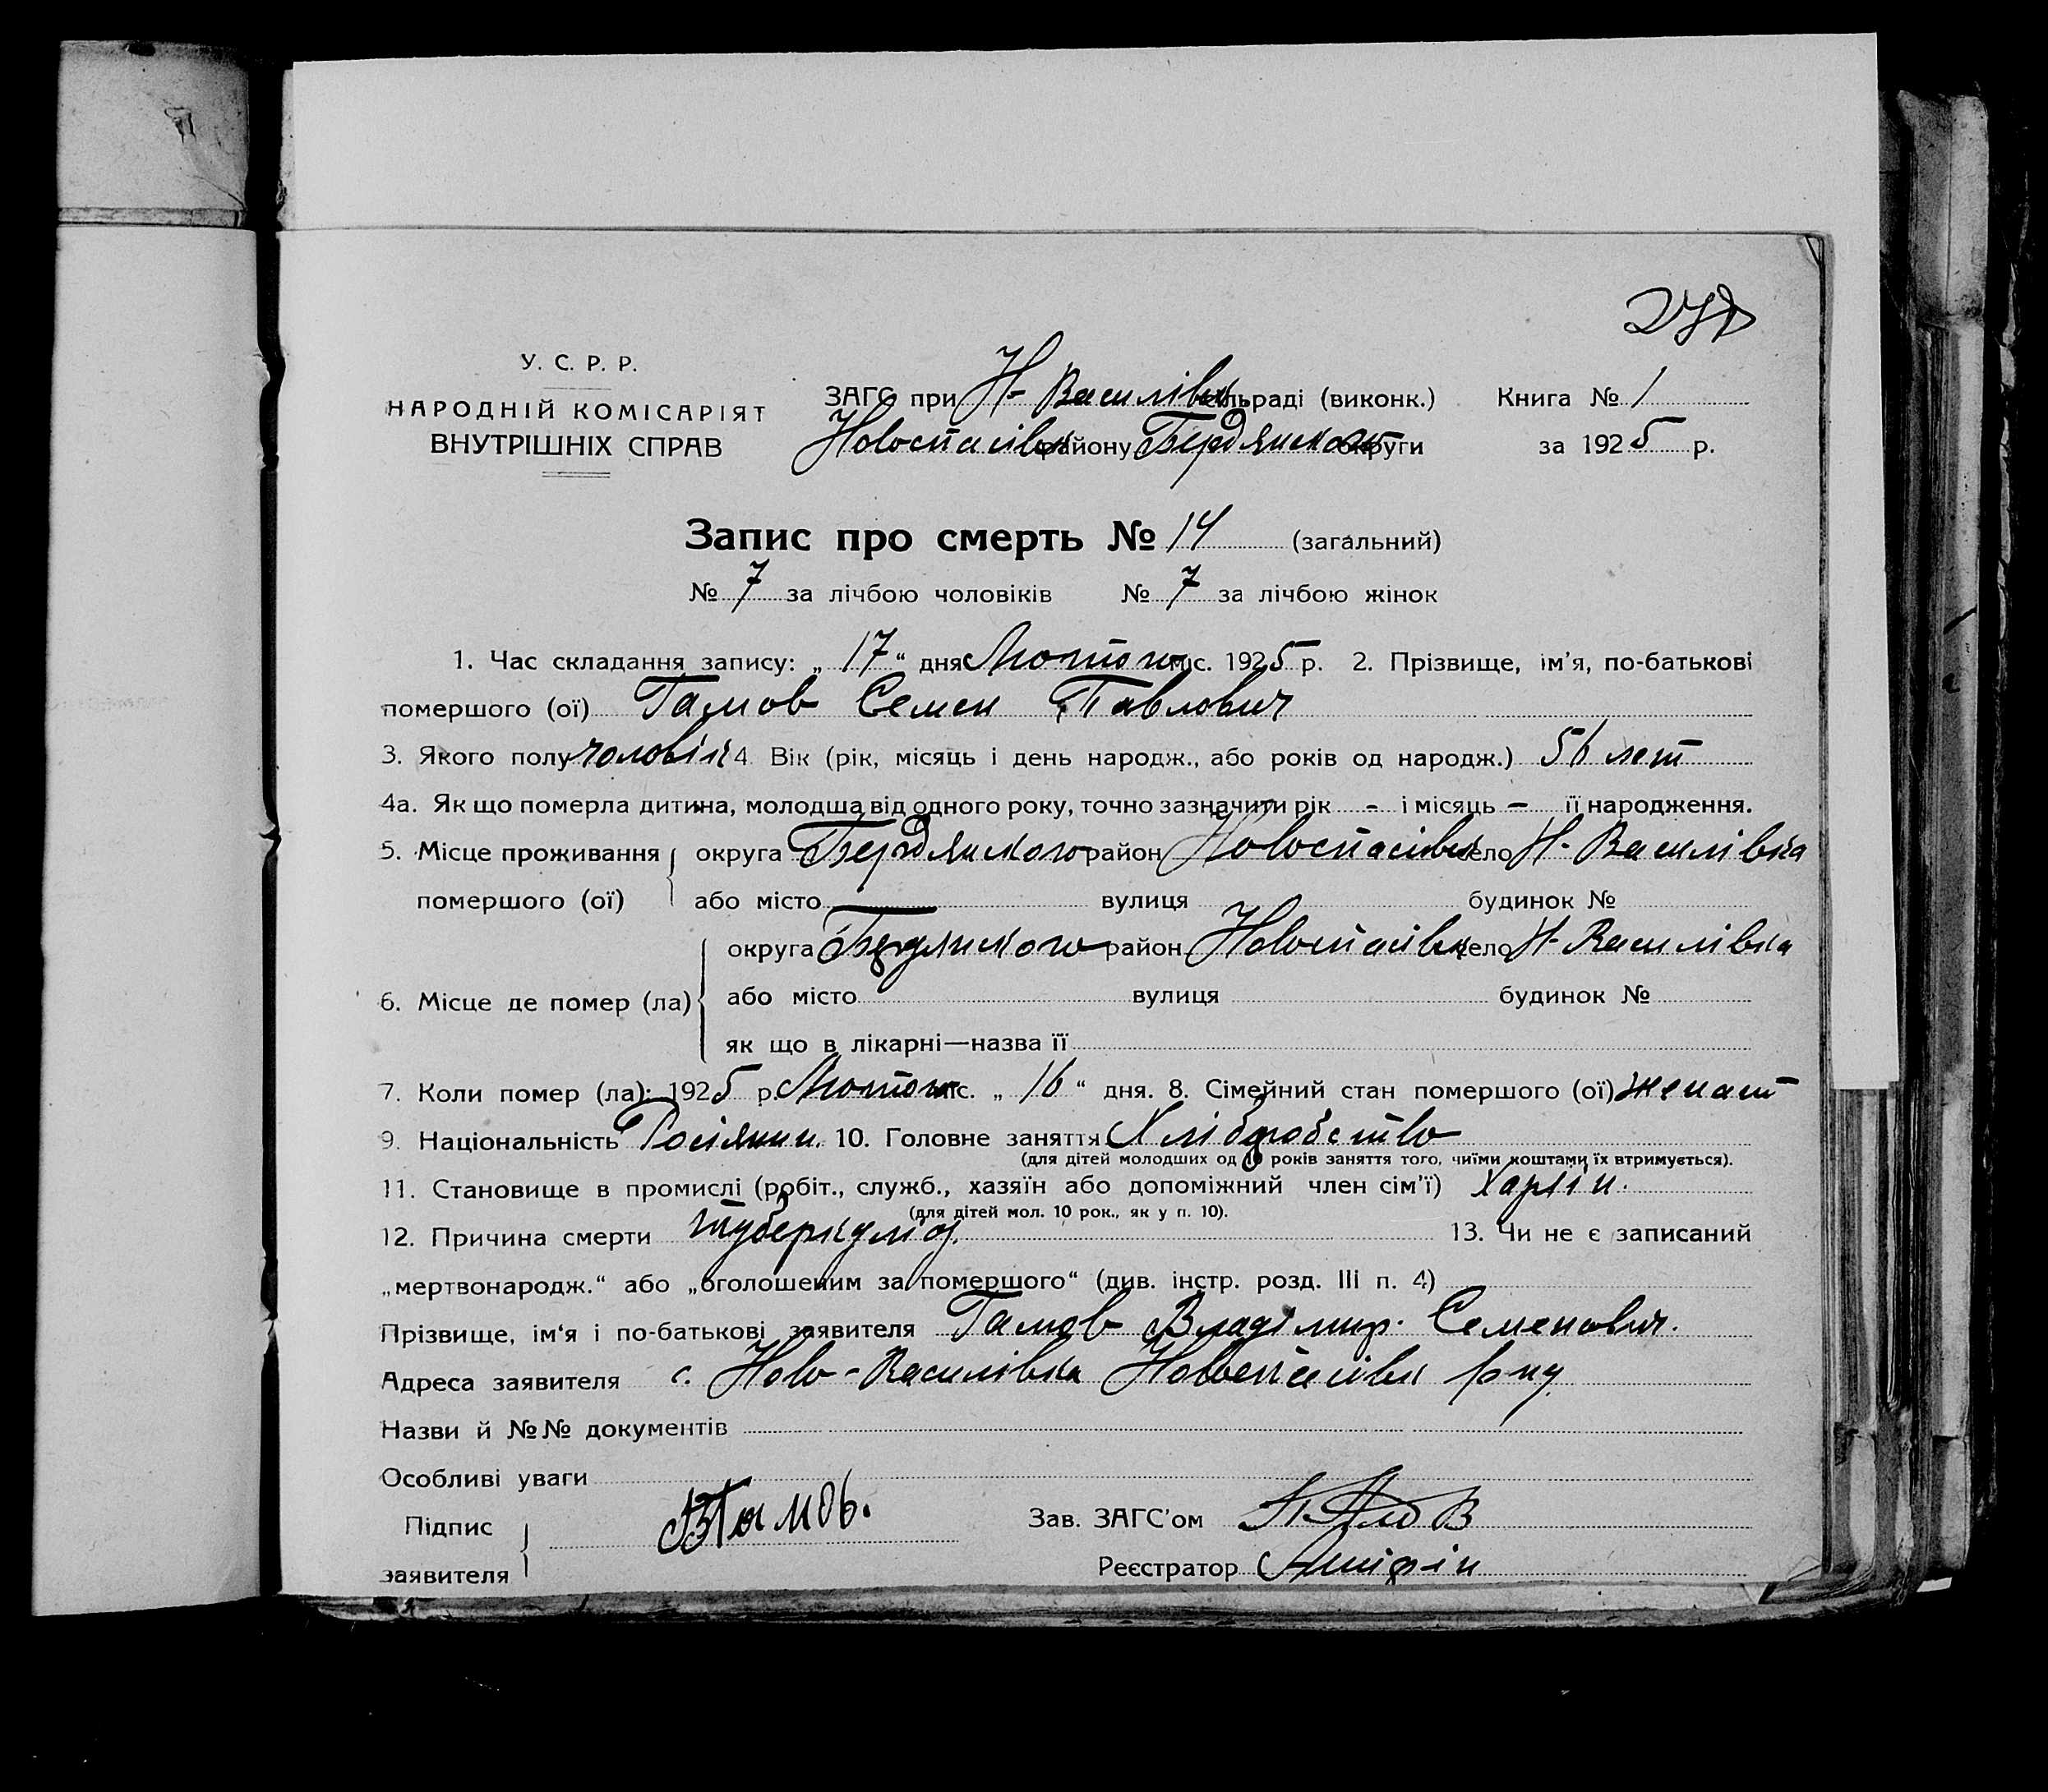 У. С. Р. Р.
НАРОДНІЙ КОМІСАРІЯТ
ВНУТРІШНІХ СПРАВ
ЗАГС при Н-Василівк сільраді (виконк.) Книга № 1
Новоспасівк району Бердянської округи за 1925 р.
Запис про смерть № 14 (загальний)
№ 7 за лічбою чоловіків № 7 за лічбою жінок
1. Час складання запису: „17“ дня Лютого міс. 1925 р. 2. Прізвище, ім'я, по-батькові
помершого (ої) Гамов Семен Павлович
3. Якого полу чоловік 4 Вік (рік, місяць і день народж., або років од народж.) 56 лет
4а. Як що померла дитина, молодша від одного року, точно зазначити рік - і місяць - її народження.
5. Місце проживання округа Бердянского район Новоспасівк село Н-Василівка
помершого (ої) або місто вулиця будинок №
округа Бердянского район Новоспасівк село Н-Василівка
6. Місце де помер (ла) або місто вулиця будинок №
як що в лікарні—назва її
7. Коли помер (ла): 1925 р. Лютого міс. „16“ дня. 8. Сімейний стан помершого (ої) женат
9. Національність Росіянин. 10. Головне заняття Хліборобство
(для дітей молодших од 10 років заняття того, чиїми коштами їх втримується).
11. Становище в промислі (робіт., служб., хазяїн або допоміжний член сім'ї)
(для дітей мол. 10 рок., як у п. 10).
12. Причина смерти туберкульоз. 13. Чи не є записаний
„мертвонародж.“ або „оголошеним за помершого“ (див. інстр. розд. III п. 4)
Прізвище, ім'я і по-батькові заявителя Гамов Владімир. Семенович.
Адреса заявителя с. Ново-Василівка Новоспасівк
Назви й №№ документів
Особливі уваги
Підпис
заявителя ВГамовъ.
Зав. ЗАГС'ом
Реєстратор